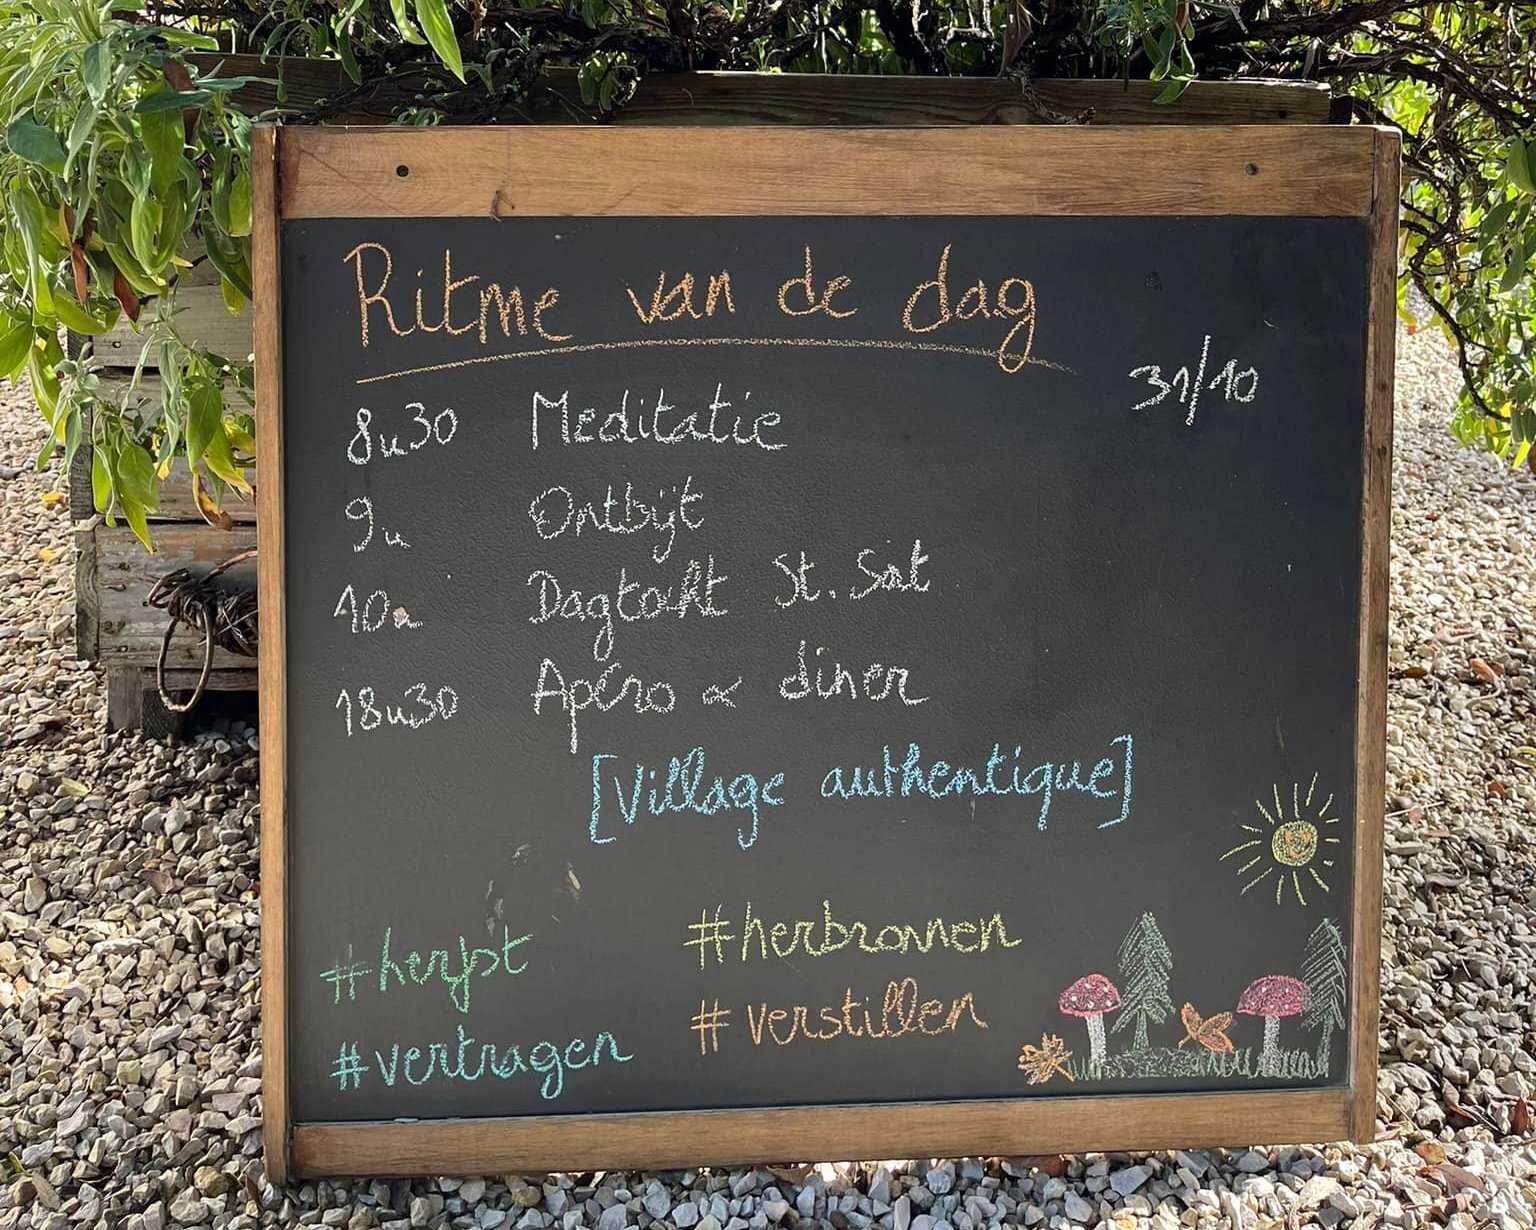 Ritme van de dag
31/10
8u30 Meditatie
9u Ontbijt
10u Dagtocht St. Sat
18u30 Apéro & diner
[Village authentique]
#herfst #herbronnen
#vertragen #verstillen